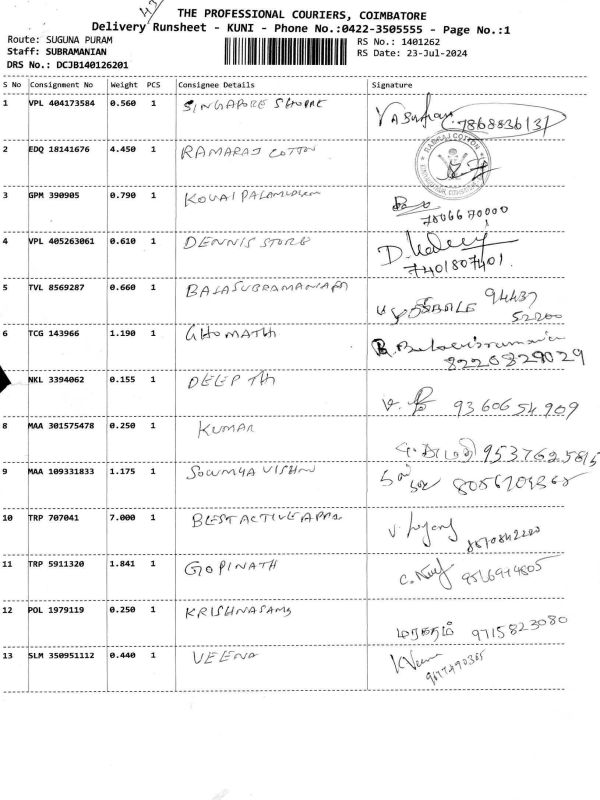 43
THE PROFESSIONAL COURIERS, COIMBATORE
Delivery Runsheet - KUNI - Phone No.:0422-3505555 - Page No.:1
Route: SUGUNA PURAM
RS No.: 1401262
Staff: SUBRAMANIAN
RS Date: 23-Jul-2024
DRS No.: DCJB140126201
S No Consignment No Weight PCS Consignee Details Signature
1 VPL 404173584 0.560 1 SINGAPORE SHOPPE 7868836131
2 EDQ 18141676 4.450 1 RAMARAJ COTTON
RAMRAJ COTTON
3 GPM 390905 0.790 1 KOVAI
7806670000
4 VPL 405263061 0.610 1 DENNIS STORE
7401807401.
5 TVL 8569287 0.660 1 BALASUBRAMANIAM 94437
52200
6 TCG 143966 1.190 1 GHOMATHI
8220829029
NKL 3394062 0.155 1 DEEPTHI 9360654909
8 MAA 301575478 0.250 1 KUMAR 9537625815
9 MAA 109331833 1.175 1 SOWMYA VISHNU
10 TRP 707041 7.000 1 BLEST ACTIVE
11 TRP 5911320 1.841 1 GOPINATH
12 POL 1979119 0.250 1 KRISHNASAMY மரகதம் 9715823080
13 SLM 350951112 0.440 1 VEENA